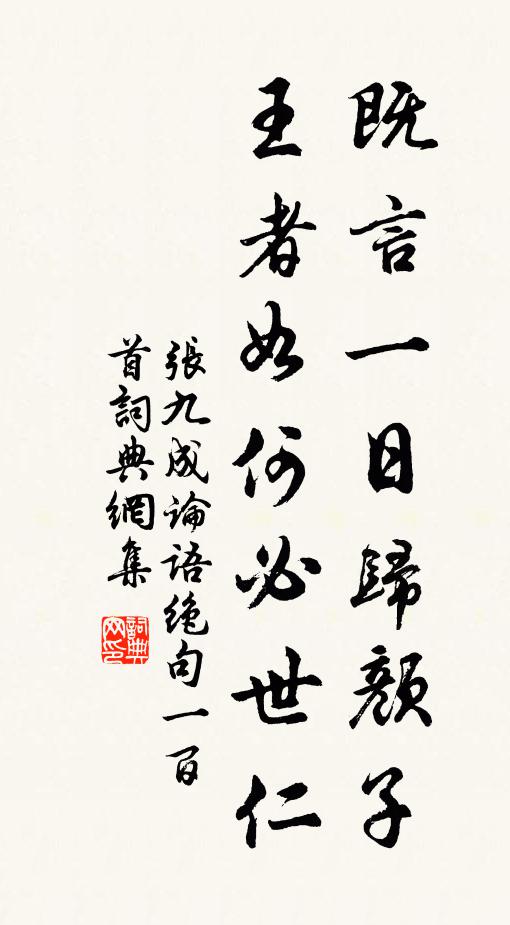 既言一日歸顏子
王者如何必世仁
張九成論語絶句一百
首詞典網集
詞典
网印